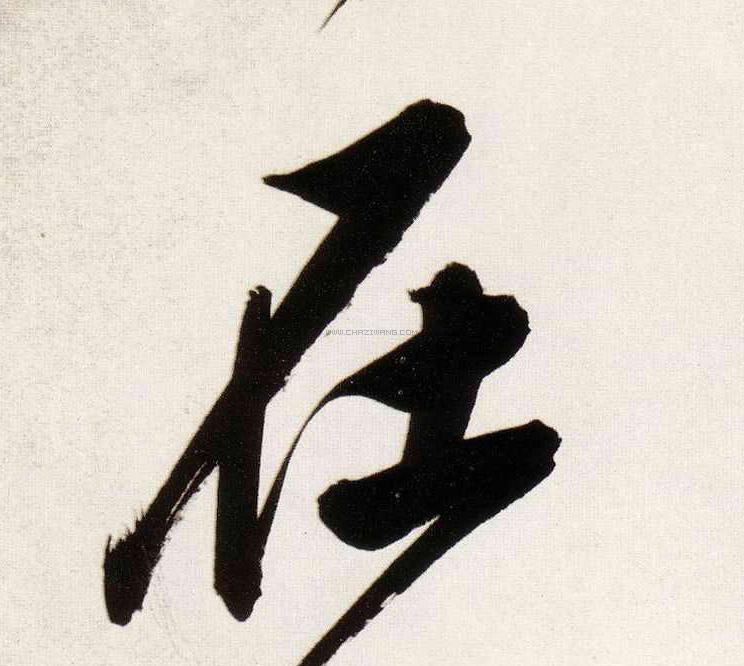 在
WWW.CHAZIWANG.COM